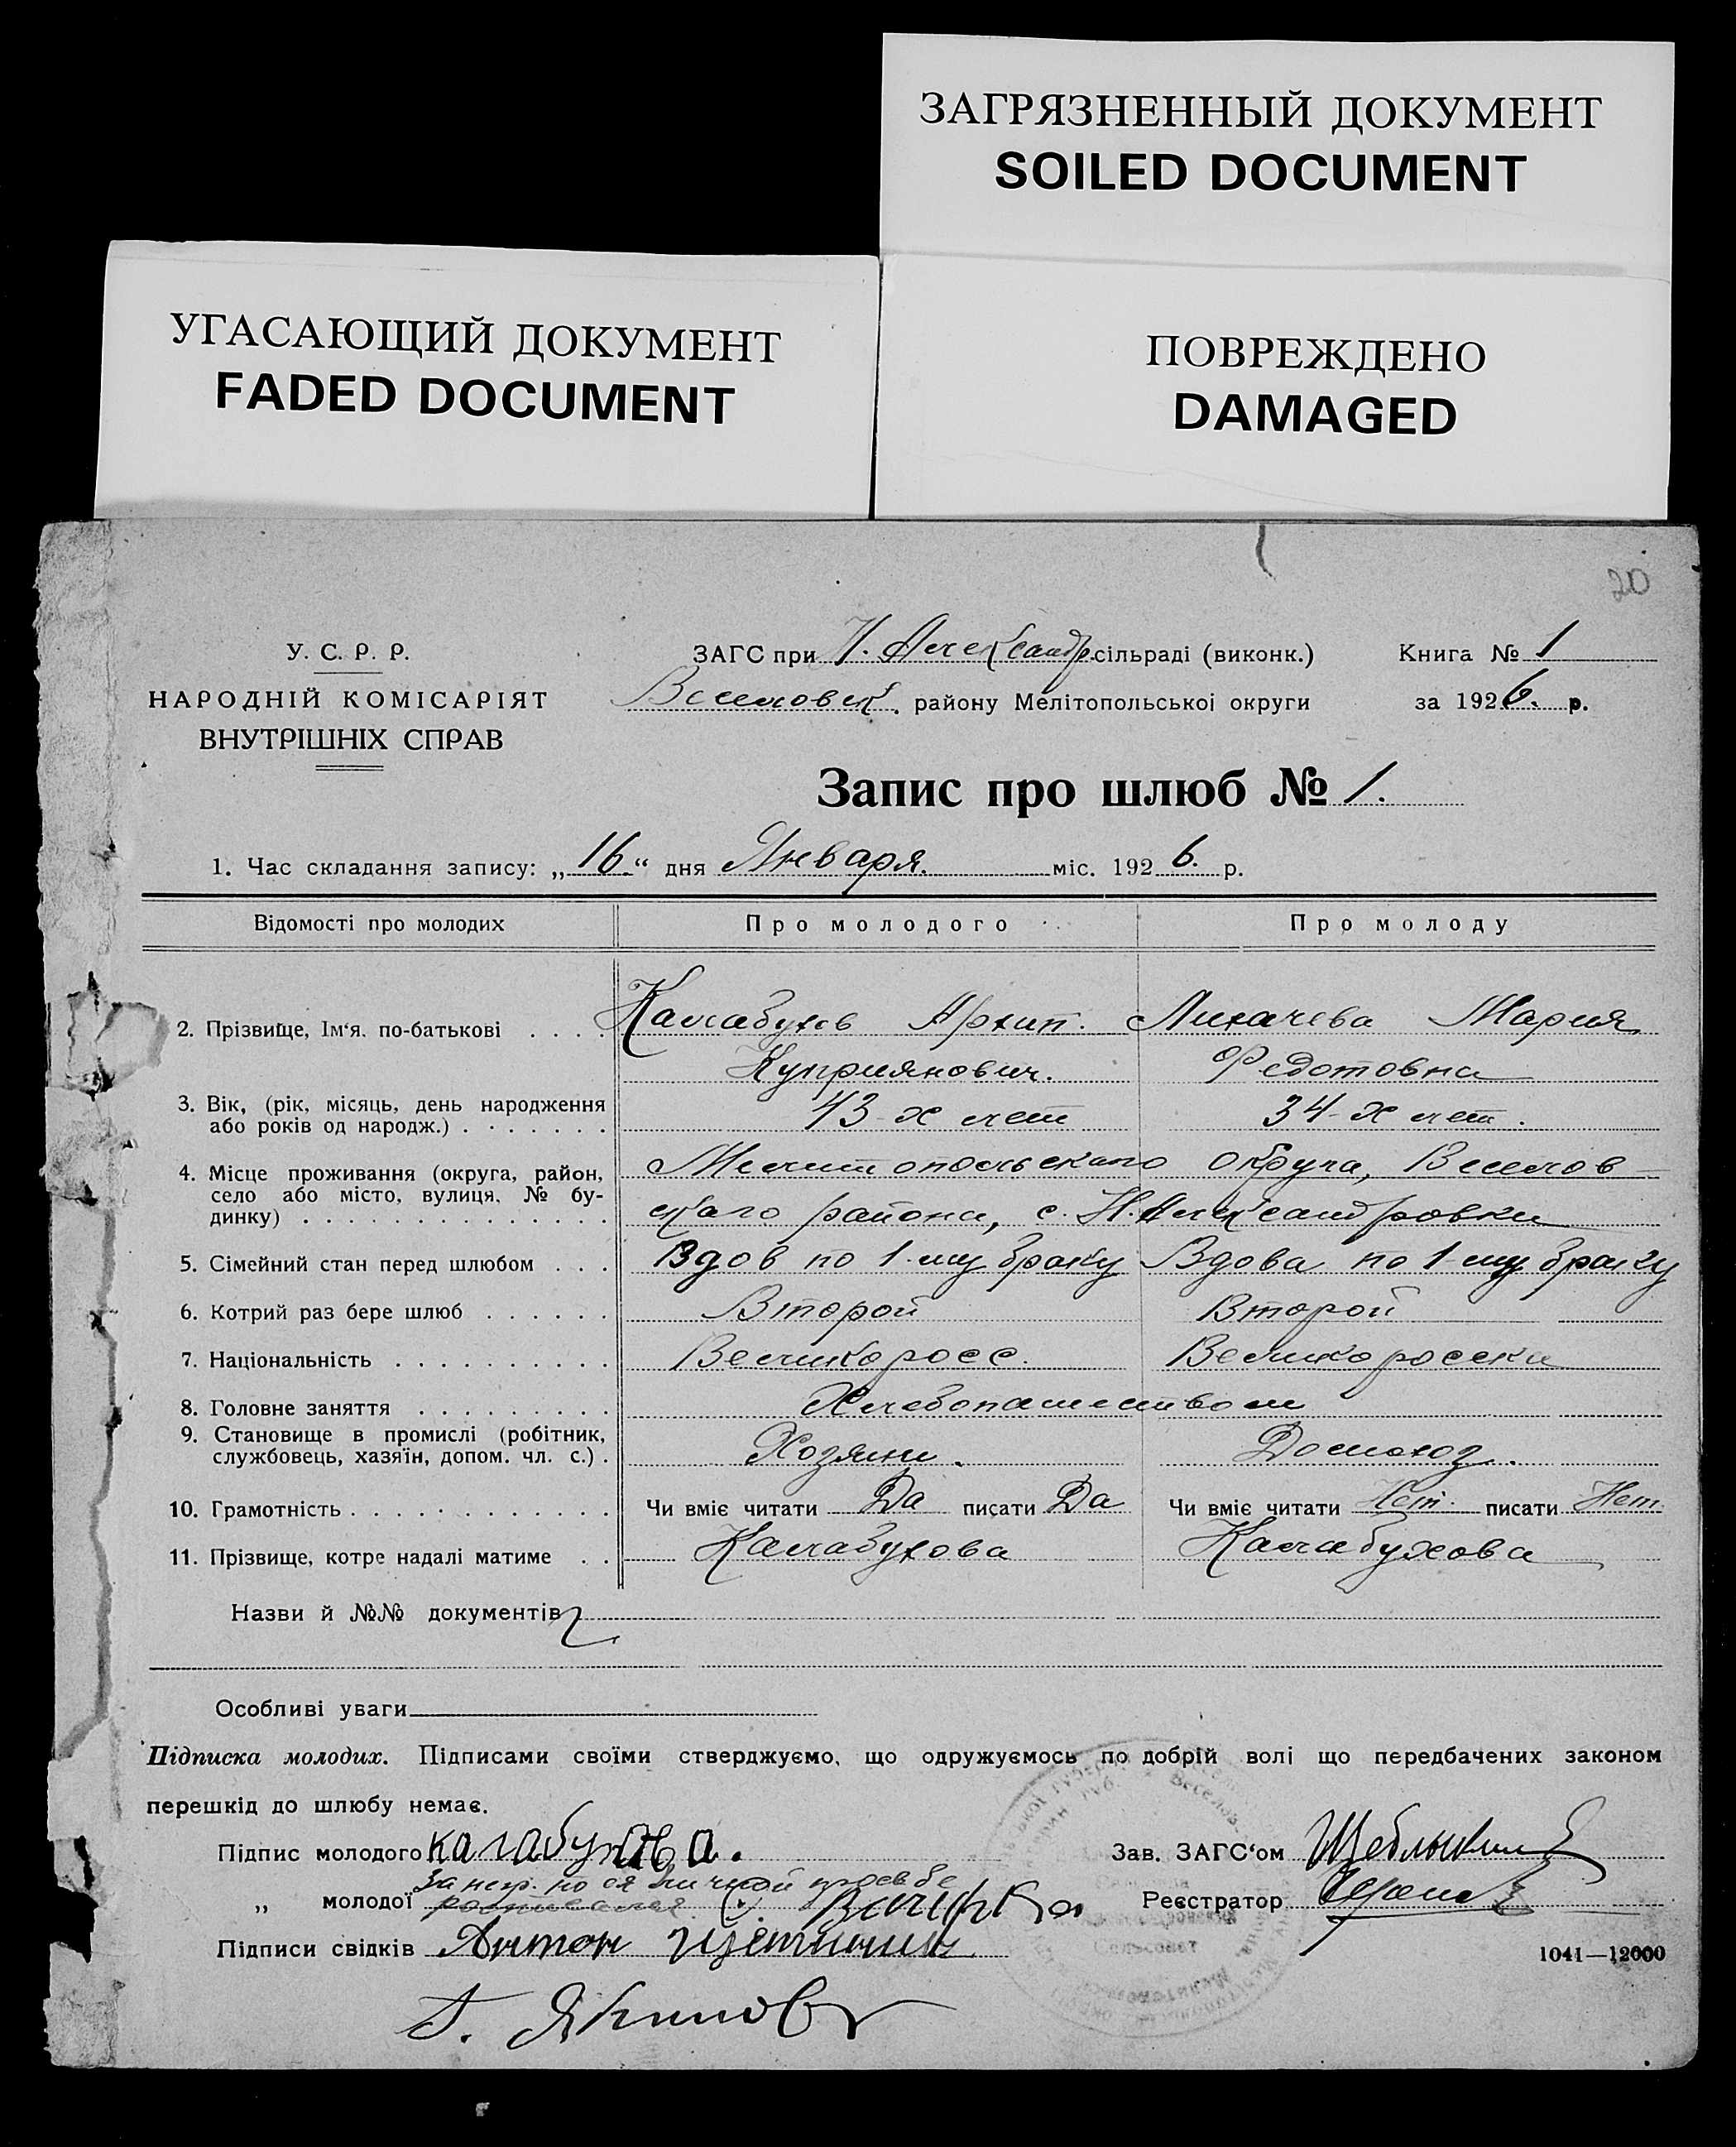 ЗАГРЯЗНЕННЫЙ ДОКУМЕНТ
SOILED DOCUMENT
УГАСАЮЩИЙ ДОКУМЕНТ
FADED DOCUMENT
ПОВРЕЖДЕНО
DAMAGED
20
У. С. Р. Р.
НАРОДНІЙ КОМІСАРІЯТ
ВНУТРІШНІХ СПРАВ
ЗАГС при Н. Александр. сільраді (виконк.)
Веселовск. району Мелітопольскої округи
Книга № 1
за 1926. р.
Запис про шлюб № 1.
1. Час складання запису: „16.“ дня Января. міс. 1926. р.
Відомості про молодих Про молодого Про молоду
2. Прізвище, Ім‘я. по-батькові . . . . Калабухов Архип. Лихачева Мария
Куприянович. Федотовна
3. Вік, (рік, місяць, день народження
або років од народж.) . . . . . . . 43-х лет 34-х лет.
4. Місце проживання (округа, район,
село або місто, вулиця, № бу-
динку) . . . . . . . . . . . . . .
Мелитопольскаго округа, Веселов-
скаго района, с. Н. Александровки
5. Сімейний стан перед шлюбом . . . Вдов по 1-му браку Вдова по 1-му браку
6. Котрий раз бере шлюб . . . . . . Второй Второй
7. Національність . . . . . . . . . . Великоросс. Великоросска
8. Головне заняття . . . . . . . . . Хлебопашеством
9. Становище в промислі (робітник,
службовець, хазяїн, допом. чл. с.) . Хозяин. Домохоз.
10. Грамотність . . . . . . . . . . . . Чи вміє читати Да писати Да Чи вміє читати Нет. писати Нет.
11. Прізвище, котре надалі матиме . . Калабухова Калабухова
Назви й №№ документів
Особливі уваги
Підписка молодих. Підписами своїми стверджуємо, що одружуємось по добрій волі що передбачених законом
перешкід до шлюбу немає.
Підпис молодого калабухова.
Зав. ЗАГС‘ом
„ молодої За негр. по ея личной просьбе
росписался
Реєстратор
Підписи свідків Антон
1041—12000
Сельсовет